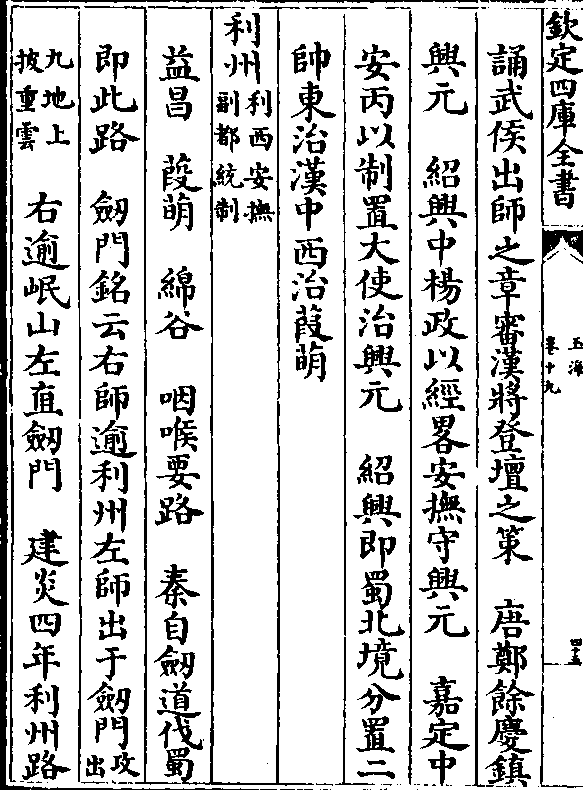 欽定四庫全書
玉海
卷十九
誦武侯出師之章審漢將登壇之策 唐鄭餘慶鎮
興元 紹興中楊政以經畧安撫守興元 嘉定中
安丙以制置大使治興元 紹興即蜀北境分置二
帥東治漢中西治葭萌
利州利西安撫副都統制
益昌 葭萌 綿谷 咽喉要路 秦自劒道伐蜀
即此路 劒門銘云右師逾利州左師出于劒門攻出
九地上披重雲 右逾岷山左直劒門 建炎四年利州路